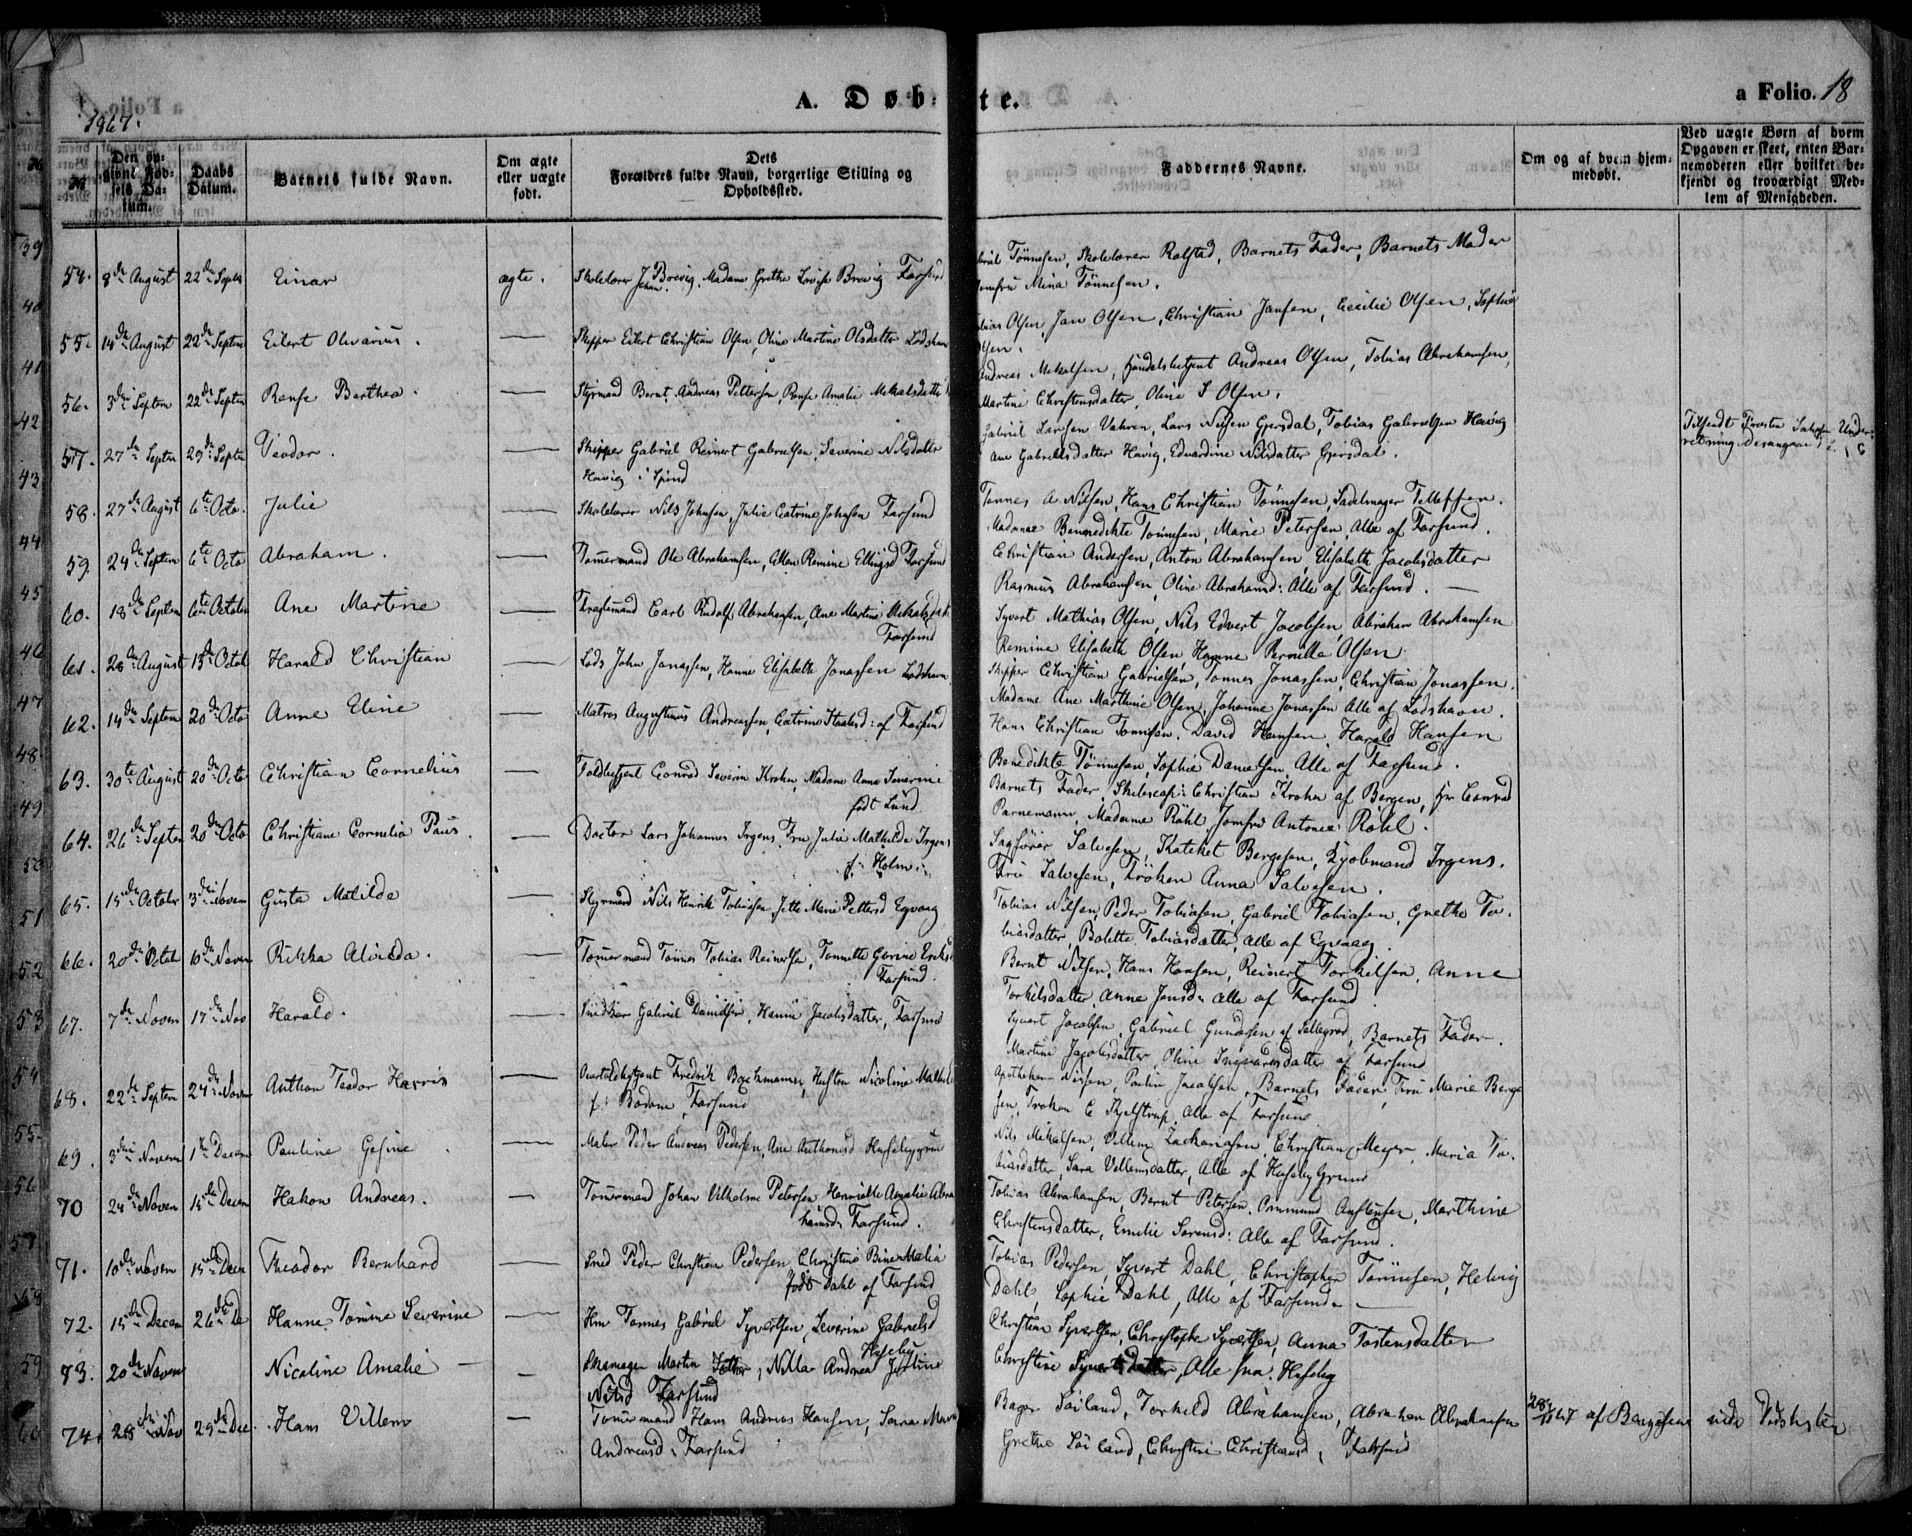 A. Døbte.
a Folio. 18
1867.
No
Den opgivne Fødsels Datum.
Daabs Datum.
Barnets fulde Navn.
Om ægte eller uægte født.
Dets Forældres fulde Navn, borgerlige Stilling og Opholdssted.
Faddernes Navne.
Om og af hvem hjemmedøbt.
Ved uægte Børn af hvem Opgaven er skeet, enten Barnemoderen eller hvilket bekjendt og troværdigt Medlem af Menigheden.
54. 8de August 22de Septbr Einar ægte. Skolelærer J. Johan Brevig, Madame Grethe Lovise Brevig Farsund
Tønnesen, Skolelærer Rolfstad, Barnets Fader, Barnets Moder
Jomfru Mina Tønnesen.
55. 14de August 22de Septem Eilert Olivarius. — Skipper Eilert Christian Olsen, Oline Martine Olsdatter Lodshavn
Tobias Olsen Jan Olsen, Christian Jansen, Cecilie Olsen, Sophie
Olsen.
56. 3die Septem 22de Septem Rense Barthea. — Styrmand Bernt Andreas Pettersen, Rense Amalie Mikalsdatter
Andreas Mikalsen, Handelsbetjent Andreas Olsen, Tobias Abrahamsen,
Martine Christensdatter, Oline S Olsen.
57. 27de Septem 29de Septem Teodor. — Skipper Gabriel Reinert Gabrielsen, Severine Nilsdatter
Havig i Spind
Gabriel Larsen Vahren, Lars Nilsen Gjersdal, Tobias Gabrielsen Havig
Ane Gabrielsdatter Havig, Edvardine Nilsdatter Gjersdal.
Tilsendt Provsten Underretning desangaaende
58. 27de August 6te Octo. Julie — Skolelærer Nils Johnsen, Julie Catrine Johnsen Farsund
Tønnes A. Nilsen, Hans Christian Tønnesen, Sadelmager Tellefsen.
Madame Bennedikte Tønnesen, Marie Petersen, Alle af Farsund.
59. 24de Septem 6te Octo Abraham. — Tømermand Ole Abrahamsen, Ellen Remine Ellingsd Farsund
Christian Andersen, Anton Abrahamsen, Elisabeth Jacobsdatter
Rasmus Abrahamsen, Oline Abrahamsd: Alle af Farsund.
60. 18de Septem 6te October Ane Martine — Fragtemand Carl Rudolf Abrahamsen, Ane Martine Mikalsdatt
Farsund
Syvert Mathias Olsen, Nils Edvert Jacobsen, Abraham Abrahamsen
Remine Elisabeth Olsen, Hanne Pernille Olsen
61. 28de August 13de Octob Harald Christian — Lods John Jonassen, Hanne Elisabeth Jonassen Lodshavn.
Skipper Christian Gabrielsen, Tønnes Jonassen, Christian Jonassen.
Madame Ane Marthine Olsen, Johanne Jonassen Alle af Lodshavn.
62. 14de Septem 20de Octo Anne Eline — Matros Augustinus Andreassen, Catrine Staalesd: af Farsund
Hans Christian Tønnesen, David Hansen, Harald Hansen
Benedikte Tønnesen, Sophie Danielsen, Alle af Farsund.
63. 30te August 20de Octo Christian Cornelius — Toldbetjent Conrad Severin Krohn, Madame Anna Severine
født Lund.
Barnets Fader, Christian Krohn af Bergen, Hr Conrad
Parnemann, Madame Röhl, Jomfru Antonie Röhl.
64. 26de Septem 20de Octo Christiane Cornelia Paus. — Doctor Lars Johannes Irgens, Fru Julie Mathilde Irgens
f: Holm.
Sagfører Salvesen, Kateket Bergesen, Kjøbmand Irgens.
Fru Salvesen, Frøken Anna Salvesen.
65. 15de October 3die Novem Gusta Matilde — Styrmand Nils Henrik Tobiasen, Jette Marie Pettersd Egvaag
Tobias Nilsen, Peder Tobiasen, Gabriel Tobiasen, Grethe Tobiasdatter,
Bolette Tobiasdatter, alle af Egvaag.
66. 20de Octob 10de Novem Rikka Alvilda. — Tømermand Tønnes Tobias Reinertsen, Tonnette Gurine Eriksd
Farsund.
Bernt Nilsen, Hans Hansen, Reinert Torkilsen, Anne
Torkilsdatter, Anne Jensd: alle af Farsund.
67. 7de Novem 17de Nov Harald. — Snedker Gabriel Danielsen, Hanne Jacobsdatter, Farsund
Syvert Jacobsen, Gabriel Gundersen af, Barnets Fader.
Martine Jacobsdatter, Oline Ingvaldsdatter af Farsund
68. 22de Septem 24de Novem Anthon Teodor Harris — Fredrik Bockmann, Hustru Nicoline Mathilde
f: Bodom, Farsund
Apotheker Nissen, Poulin Jacobsen, Barnets Fader, Fru Marie Bergesen,
Frøken C Kjelstrup, alle af Farsund
69. 3die Novem 1te Decem Pauline Gesine. — Maler Peder Andreas Pedersen, Ane Anthonisd Huseby grund
Nils Mikalsen, Villem Zachariasen, Christian Meyer, Maria Tobiasdatter,
Sara Villemsdatter, Alle af Huseby Grund
70 24de Novem 15de Decem Hakon Andreas. — Tømermand Johan Vilhelm Petersen Henriette Amalie Abrahamsd:
Farsund.
Tobias Abrahamsen, Bernt Petersen, Ommund Austensen, Marthine
Christensdatter, Emilie Sørensd: Alle af Farsund.
71. 10de Novem 15de Decem Theodor Bernhard — Smed Peder Christian Pedersen Christine Bine Malie
født Dahl af Farsund
Tobias Pedersen, Syvert Dahl, Christopher Tønnesen, Helvig
Dahl, Sophie Dahl, Alle af Farsund.
72. 15de Decem 26de De Hanne Tomine Severine — Hm Tønnes Gabriel Syvertsen, Severine Gabrielsd
Huseby
Christian Syvertsen, Christopher Syvertsen, Anna Tostensdatter
Christine Syvertsdatter, Alle fra Huseby
73. 20de Novem Nicoline Amalie — Skomager Martin, Nilla Andrea Justine
Nilsd Farsund
74. 28de Nov 29de Dec Hans Villem — Tømermand Hans Andreas Hansen, Sara Marie
Andreasd: Farsund
Bager Søiland, Torkild Abrahamsen, Abraham Abrahamsen
Grethe Søiland, Christine Christiansd, Farsund
28/11 67 af Bergesen